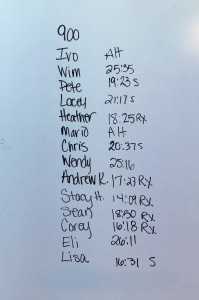 900
Ivo AH
Wim 25:35
Pete 19:23 S
Lacey 21:17 S
Heather 18:25 RX
Mario AH
Chris 20:37 S
Wendy 25:16
Andrew R. 17:23 RX
Stacy H. 14:09 RX
Sean 18:50 RX
Corey 16:18 RX
Eli 26:11
Lisa 16:31 S